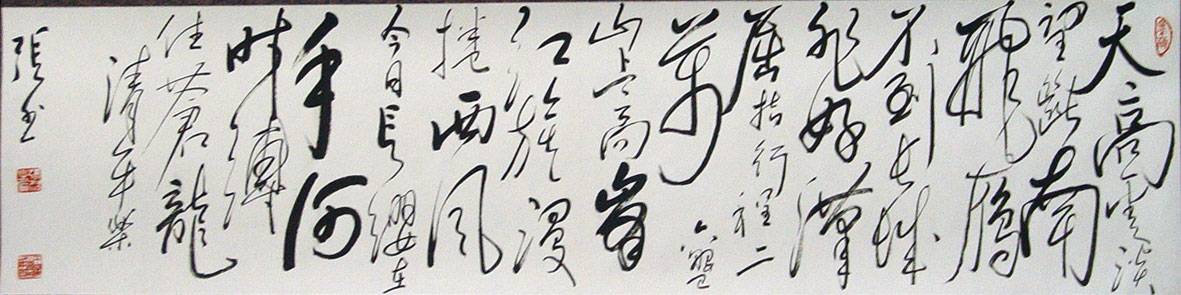 天高雲淡
望斷南
飛雁
不到长城
非好漢
屈指行程二
萬六盤
山上高峰
红旗漫
捲西风
今日长缨在
手何
时縛
住蒼龍
清平樂
張